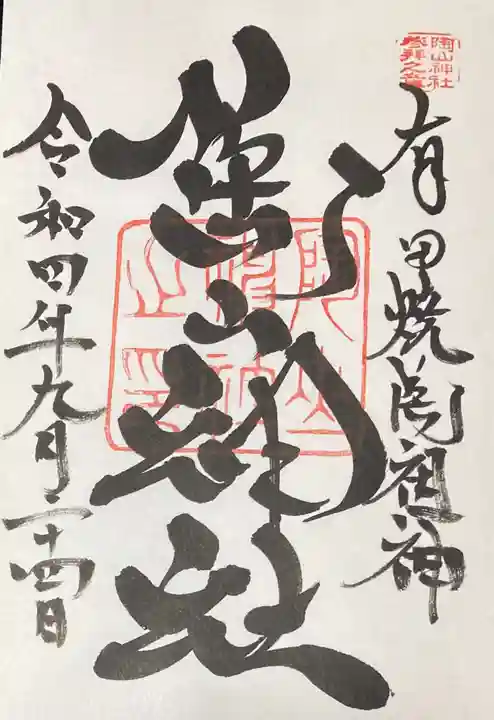 陶山神社
参拝之章
有田焼陶祖神
陶山神社
令和四年九月二十四日